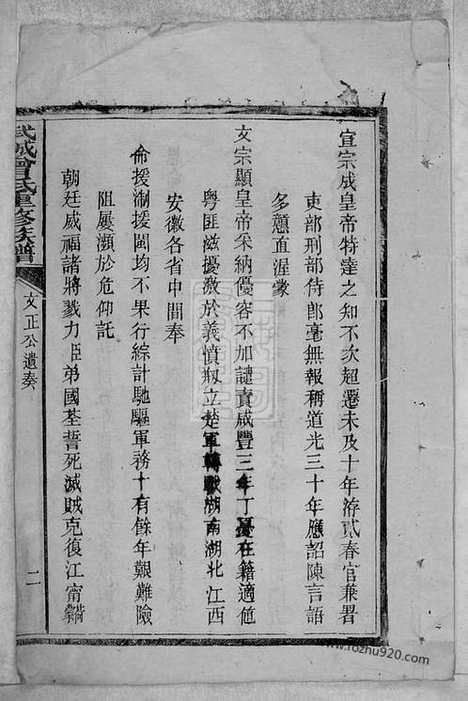 宣宗成皇帝特達之知不次超遷未及十年洊貳春官兼署
吏部刑部侍郎毫無報稱道光三十年應詔陳言語
多戇直渥蒙
文宗顯皇帝采納優容不加譴責咸豐三年丁憂在籍適值
粵匪滋擾激於義憤剏立楚軍轉戰湖南湖北江西
安徽各省中間奉
命援浙援閩均不果行綜計馳驅軍務十有餘年艱難險
阻屢瀕於危仰託
朝廷威福諸將戮力臣弟國荃誓死滅賊克復江甯
武城曾氏重修族譜
文正公遺奏
二
www.rozhu920.com